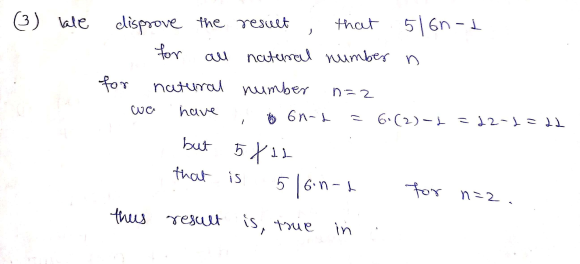 (3) We disprove the result, that 5|6n-1
for all natural number n
for natural number n=2
we have, 6n-1 = 6·(2)-1 = 12-1 = 11
but 5∤11
that is 5|6·n-1 for n=2.
thus result is, true in.